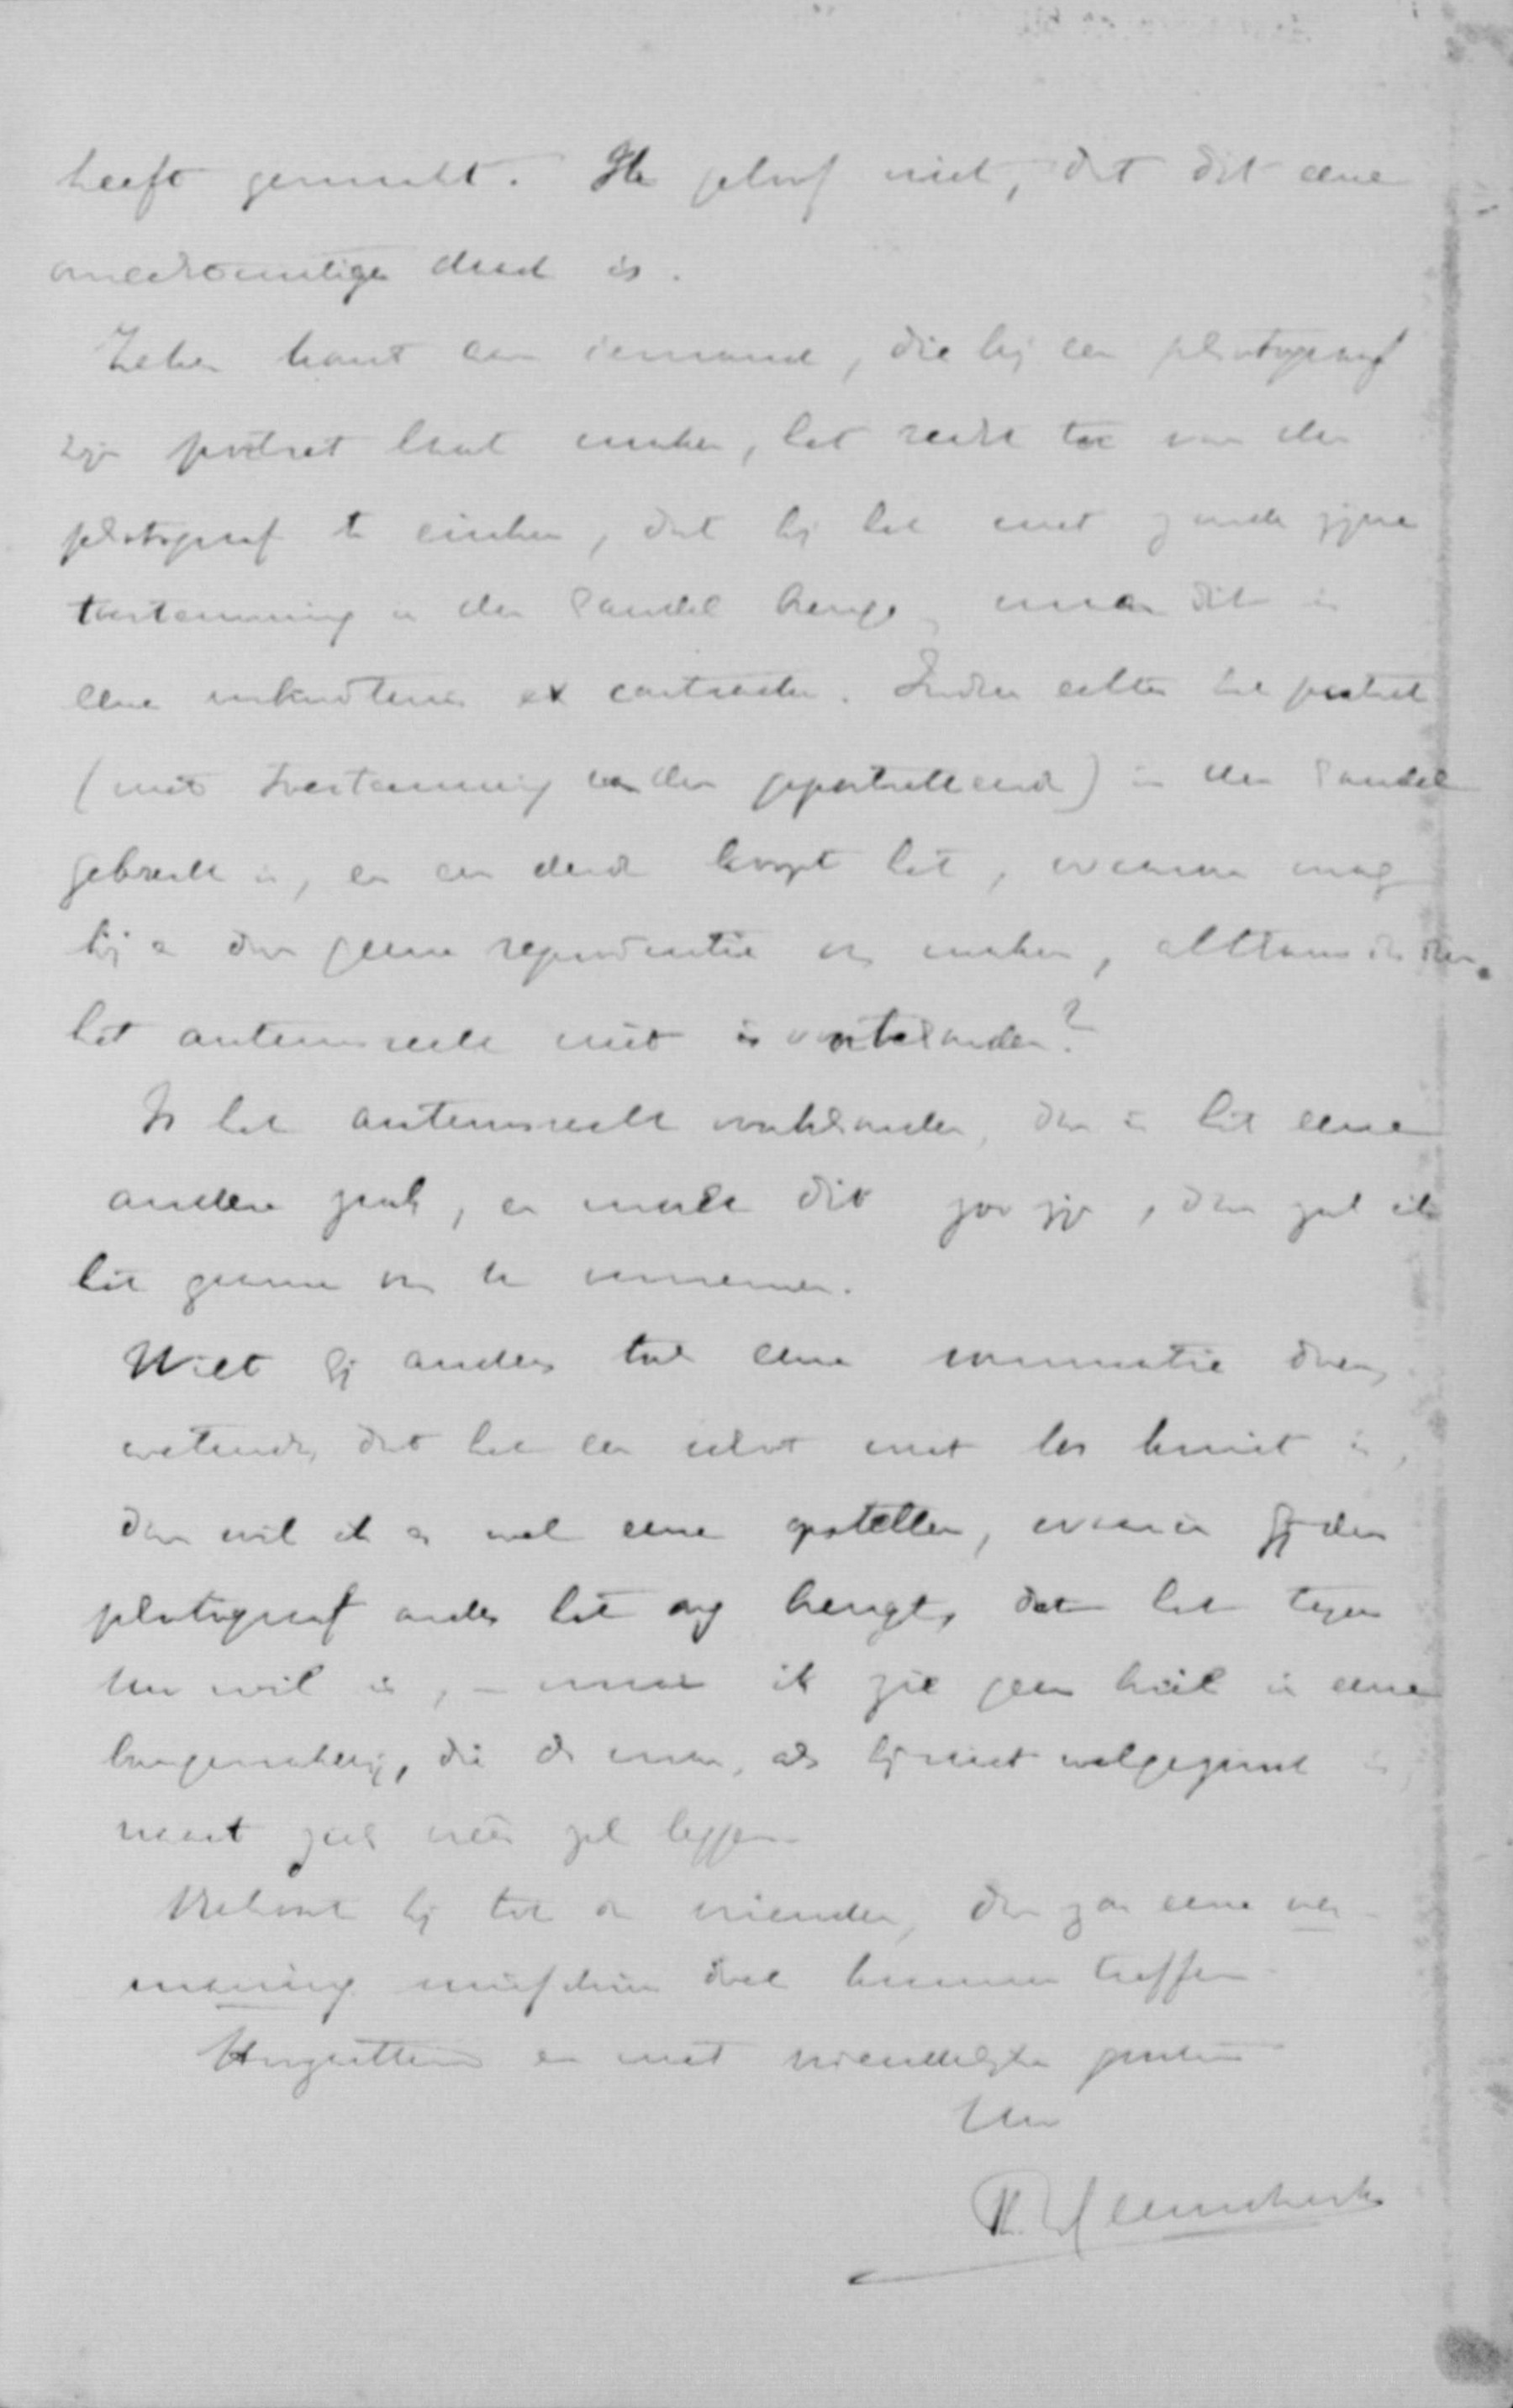 heeft gemaakt. Ik geloof niet, dat dit eene
onrechtmatige daad is.
Zeker komt aan iemand, die bij een photograaf
zijn portret laat maken, het recht toe van den
photograaf te eischen, dat hij het niet zonder zijne
toestemming in den handel brenge, maar dit is
eene verbintenis ex contractu. Indien echter het portret
(met toestemming van den geportretteerde) in den handel
gebracht is, en een derde koopt het, waarom mag
hij er dan geene reproductie van maken, althans indien
het auteursrecht niet is voorbehouden?
Is het auteursrecht voorbehouden, dan is het eene
andere zaak, en mocht dit zoo zijn, dan zal ik
het gaarne van U vernemen.
Wilt gij anders toch eene sommatie doen,
wetende, dat het een schot met los kruit is,
dan wil ik er wel eene opstellen, waarin gij den
photograaf onder het oog brengt, dat het tegen
Uw wil is, – maar ik zie geen heil in eene
bangmakerij, die de man, als hij niet welgezind is,
naast zich neer zal leggen.
Behoort hij tot de vrienden, dan zou eene ver-
maning misschien doel kunnen treffen.
Hoogachtend en met vriendelijke groeten
Uw
Th. Heemskerk